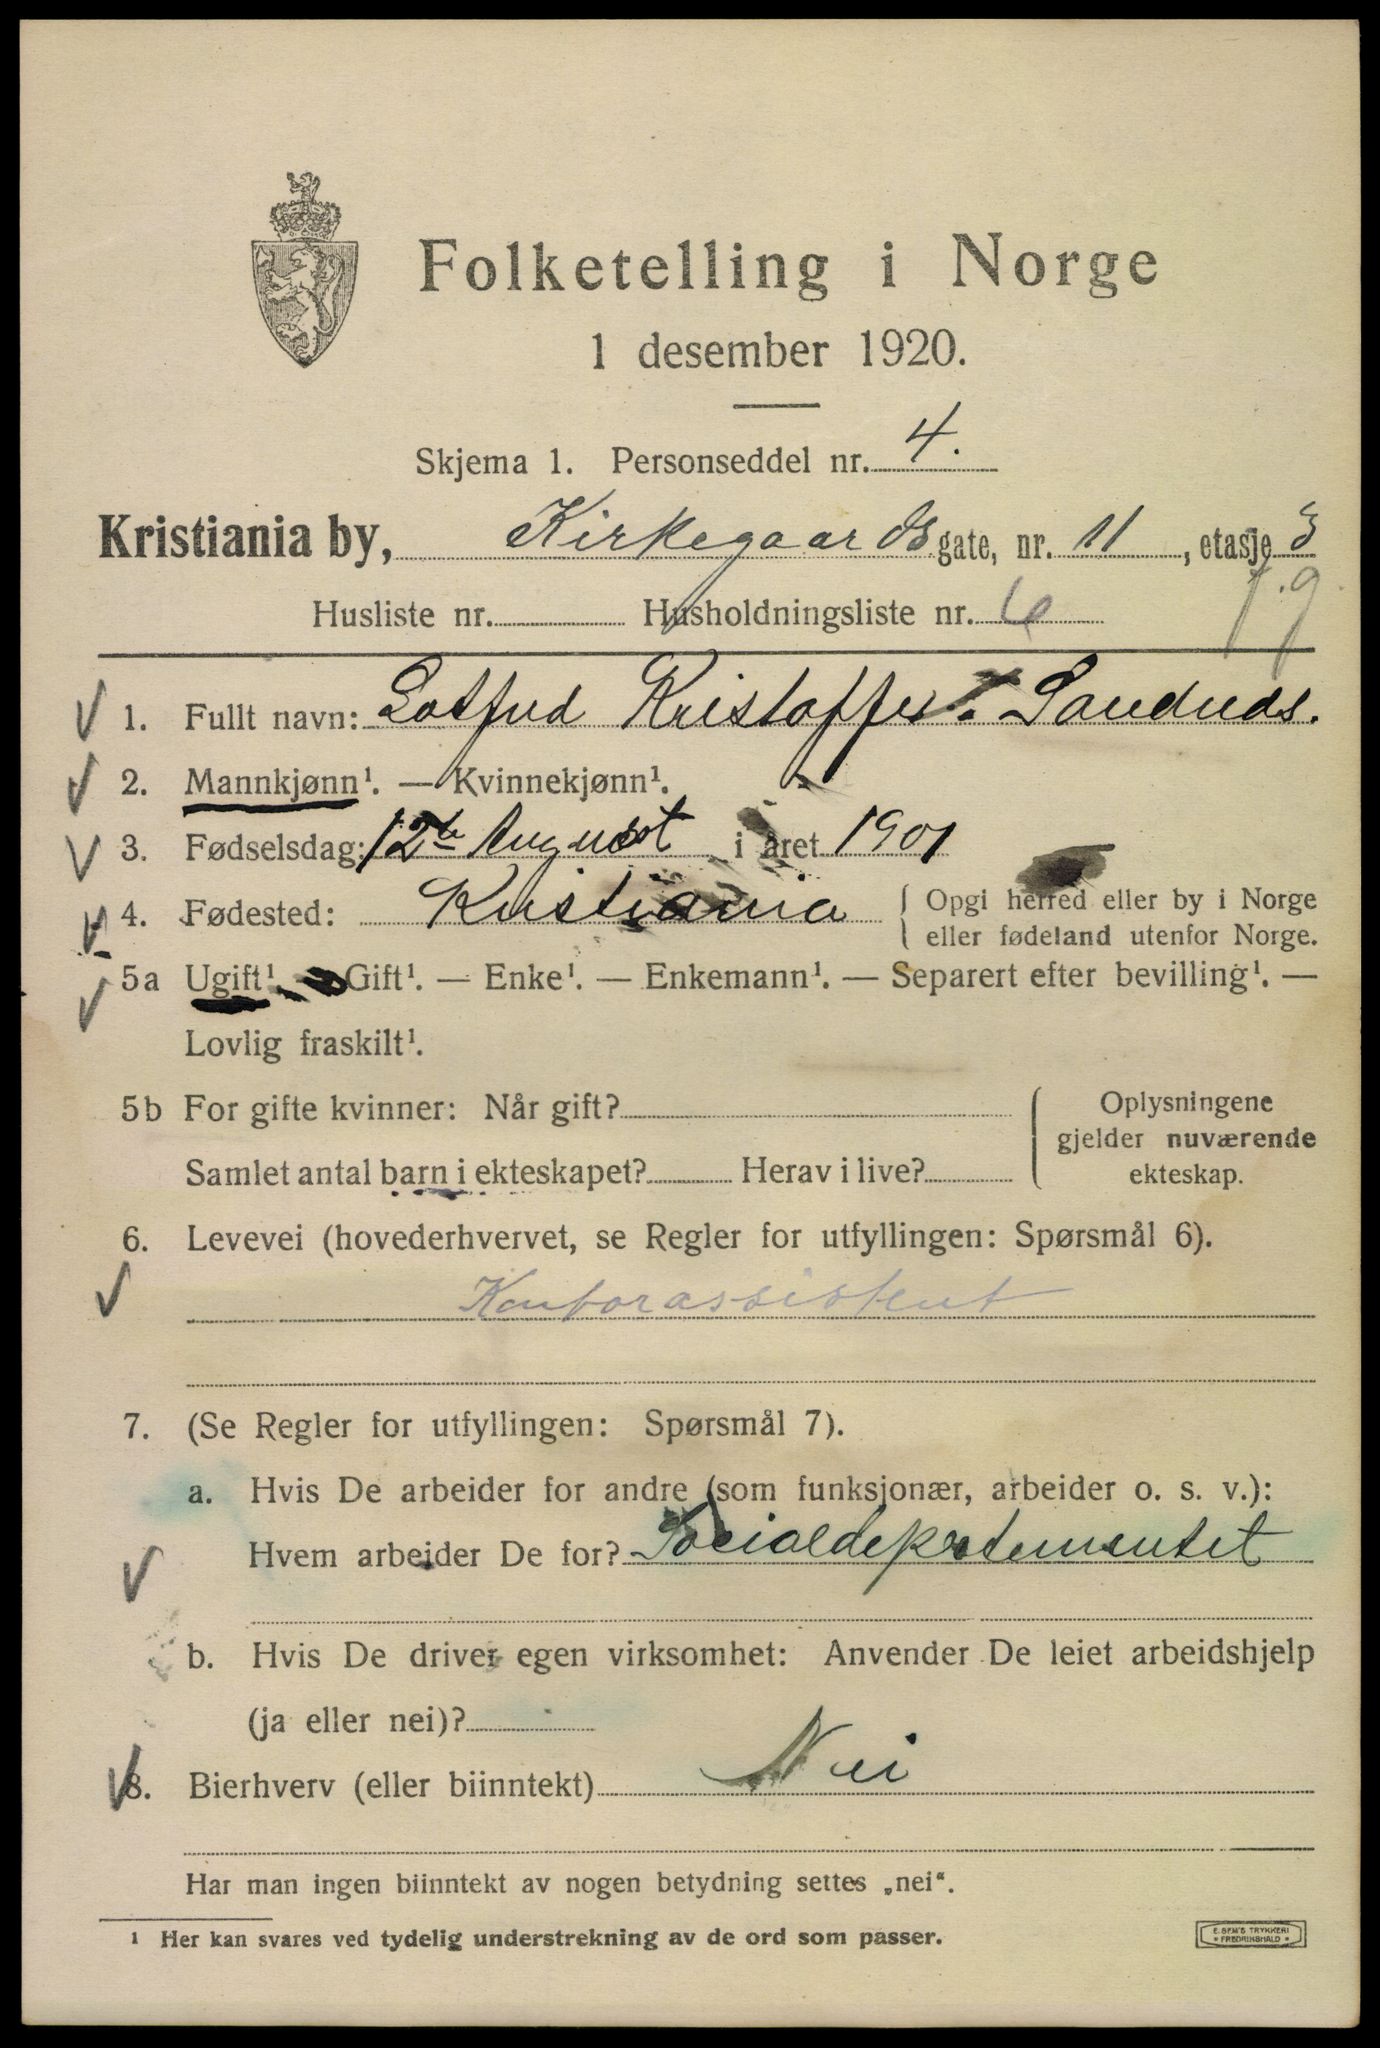 Folketelling i Norge
1 desember 1920.
Skjema 1. Personseddel nr. 4.
Kristiania by, Kirkegaards gate, nr. 11, etasje 3
Husliste nr. Husholdningsliste nr. 6 f.g.
1. Fullt navn: Kristoffer
2. Mannkjønn¹. — Kvinnekjønn¹.
3. Fødselsdag: 12te August i året 1901
4. Fødested: Kristiania { Opgi herred eller by i Norge
eller fødeland utenfor Norge.
5a Ugift¹. — Gift¹. — Enke¹. — Enkemann¹. — Separert efter bevilling¹. —
Lovlig fraskilt¹.
5b For gifte kvinner: Når gift? { Oplysningene
gjelder nuværende
Samlet antal barn i ekteskapet? Herav i live? ekteskap.
6. Levevei (hovederhvervet, se Regler for utfyllingen: Spørsmål 6).
Kontorassistent
7. (Se Regler for utfyllingen: Spørsmål 7).
a. Hvis De arbeider for andre (som funksjonær, arbeider o. s. v.):
Hvem arbeider De for? Socialdepartementet
b. Hvis De driver egen virksomhet: Anvender De leiet arbeidshjelp
(ja eller nei)?
8. Bierhverv (eller biinntekt) Nei
Har man ingen biinntekt av nogen betydning settes „nei“.
¹ Her kan svares ved tydelig understrekning av de ord som passer.
E. SEM'S TRYKKERI
* FREDRIKSHALD *